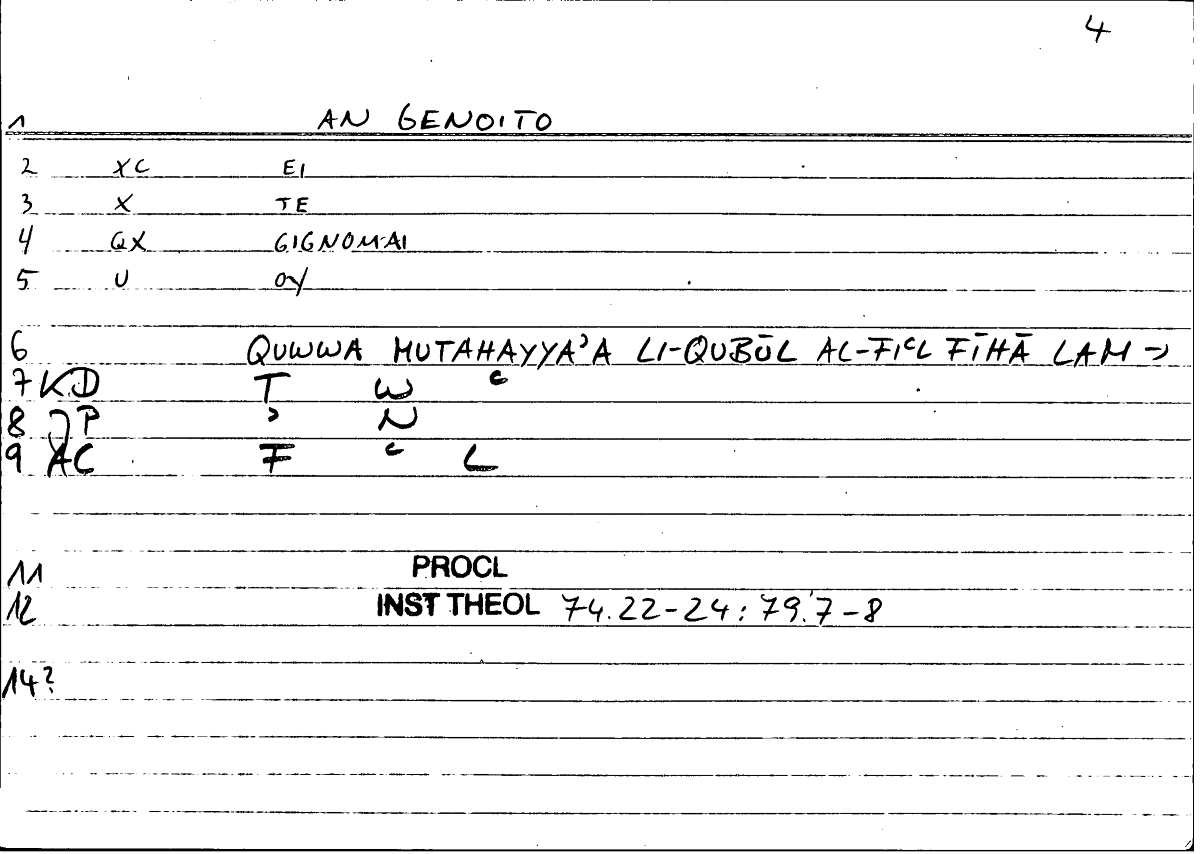 4
1 AN GENOITO
2 XC EI
3 X TE
4 QX GIGNOMAI
5 U OY
6 QUWWA MUTAHAYYAʾA LI-QUBŪL AL-FIʿL FĪHĀ LAM →
7 KD T W ʿ
8 JP ʾ N
9 AC F ʿ L
11 PROCL
12 INST THEOL 74.22-24: 79.7-8
14?